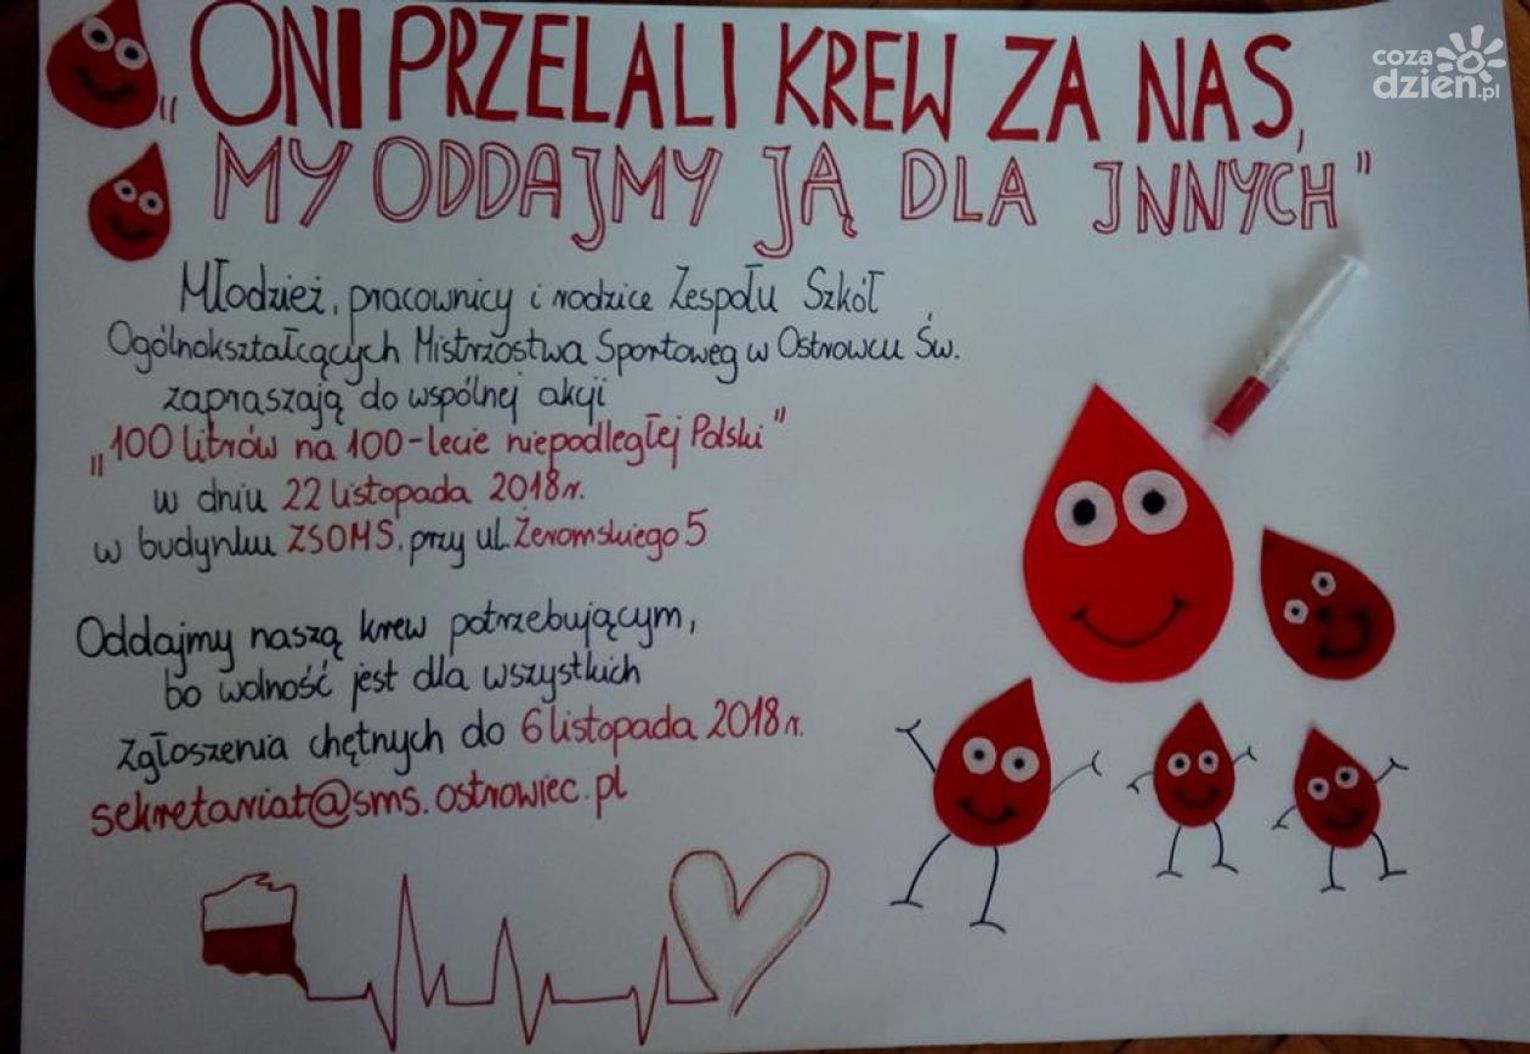 „ONI PRZELALI KREW ZA NAS,
MY ODDAJMY JĄ DLA JNNYCH"
Młodzież, pracownicy i rodzice Zespołu Szkół
Ogólnokształcących Mistrzostwa Sportoweg w Ostrowcu Św.
zapraszają do wspólnej akcji
„100 litrów na 100-lecie niepodległej Polski"
w dniu 22 listopada 2018r.
w budynku ZSOMS, przy ul. Żeromskiego 5
Oddajmy naszą krew potrzebującym,
bo wolność jest dla wszystkich
Zgłoszenia chętnych do 6 listopada 2018r.
sekretariat@sms.ostrowiec.pl
coza
dzien.pl